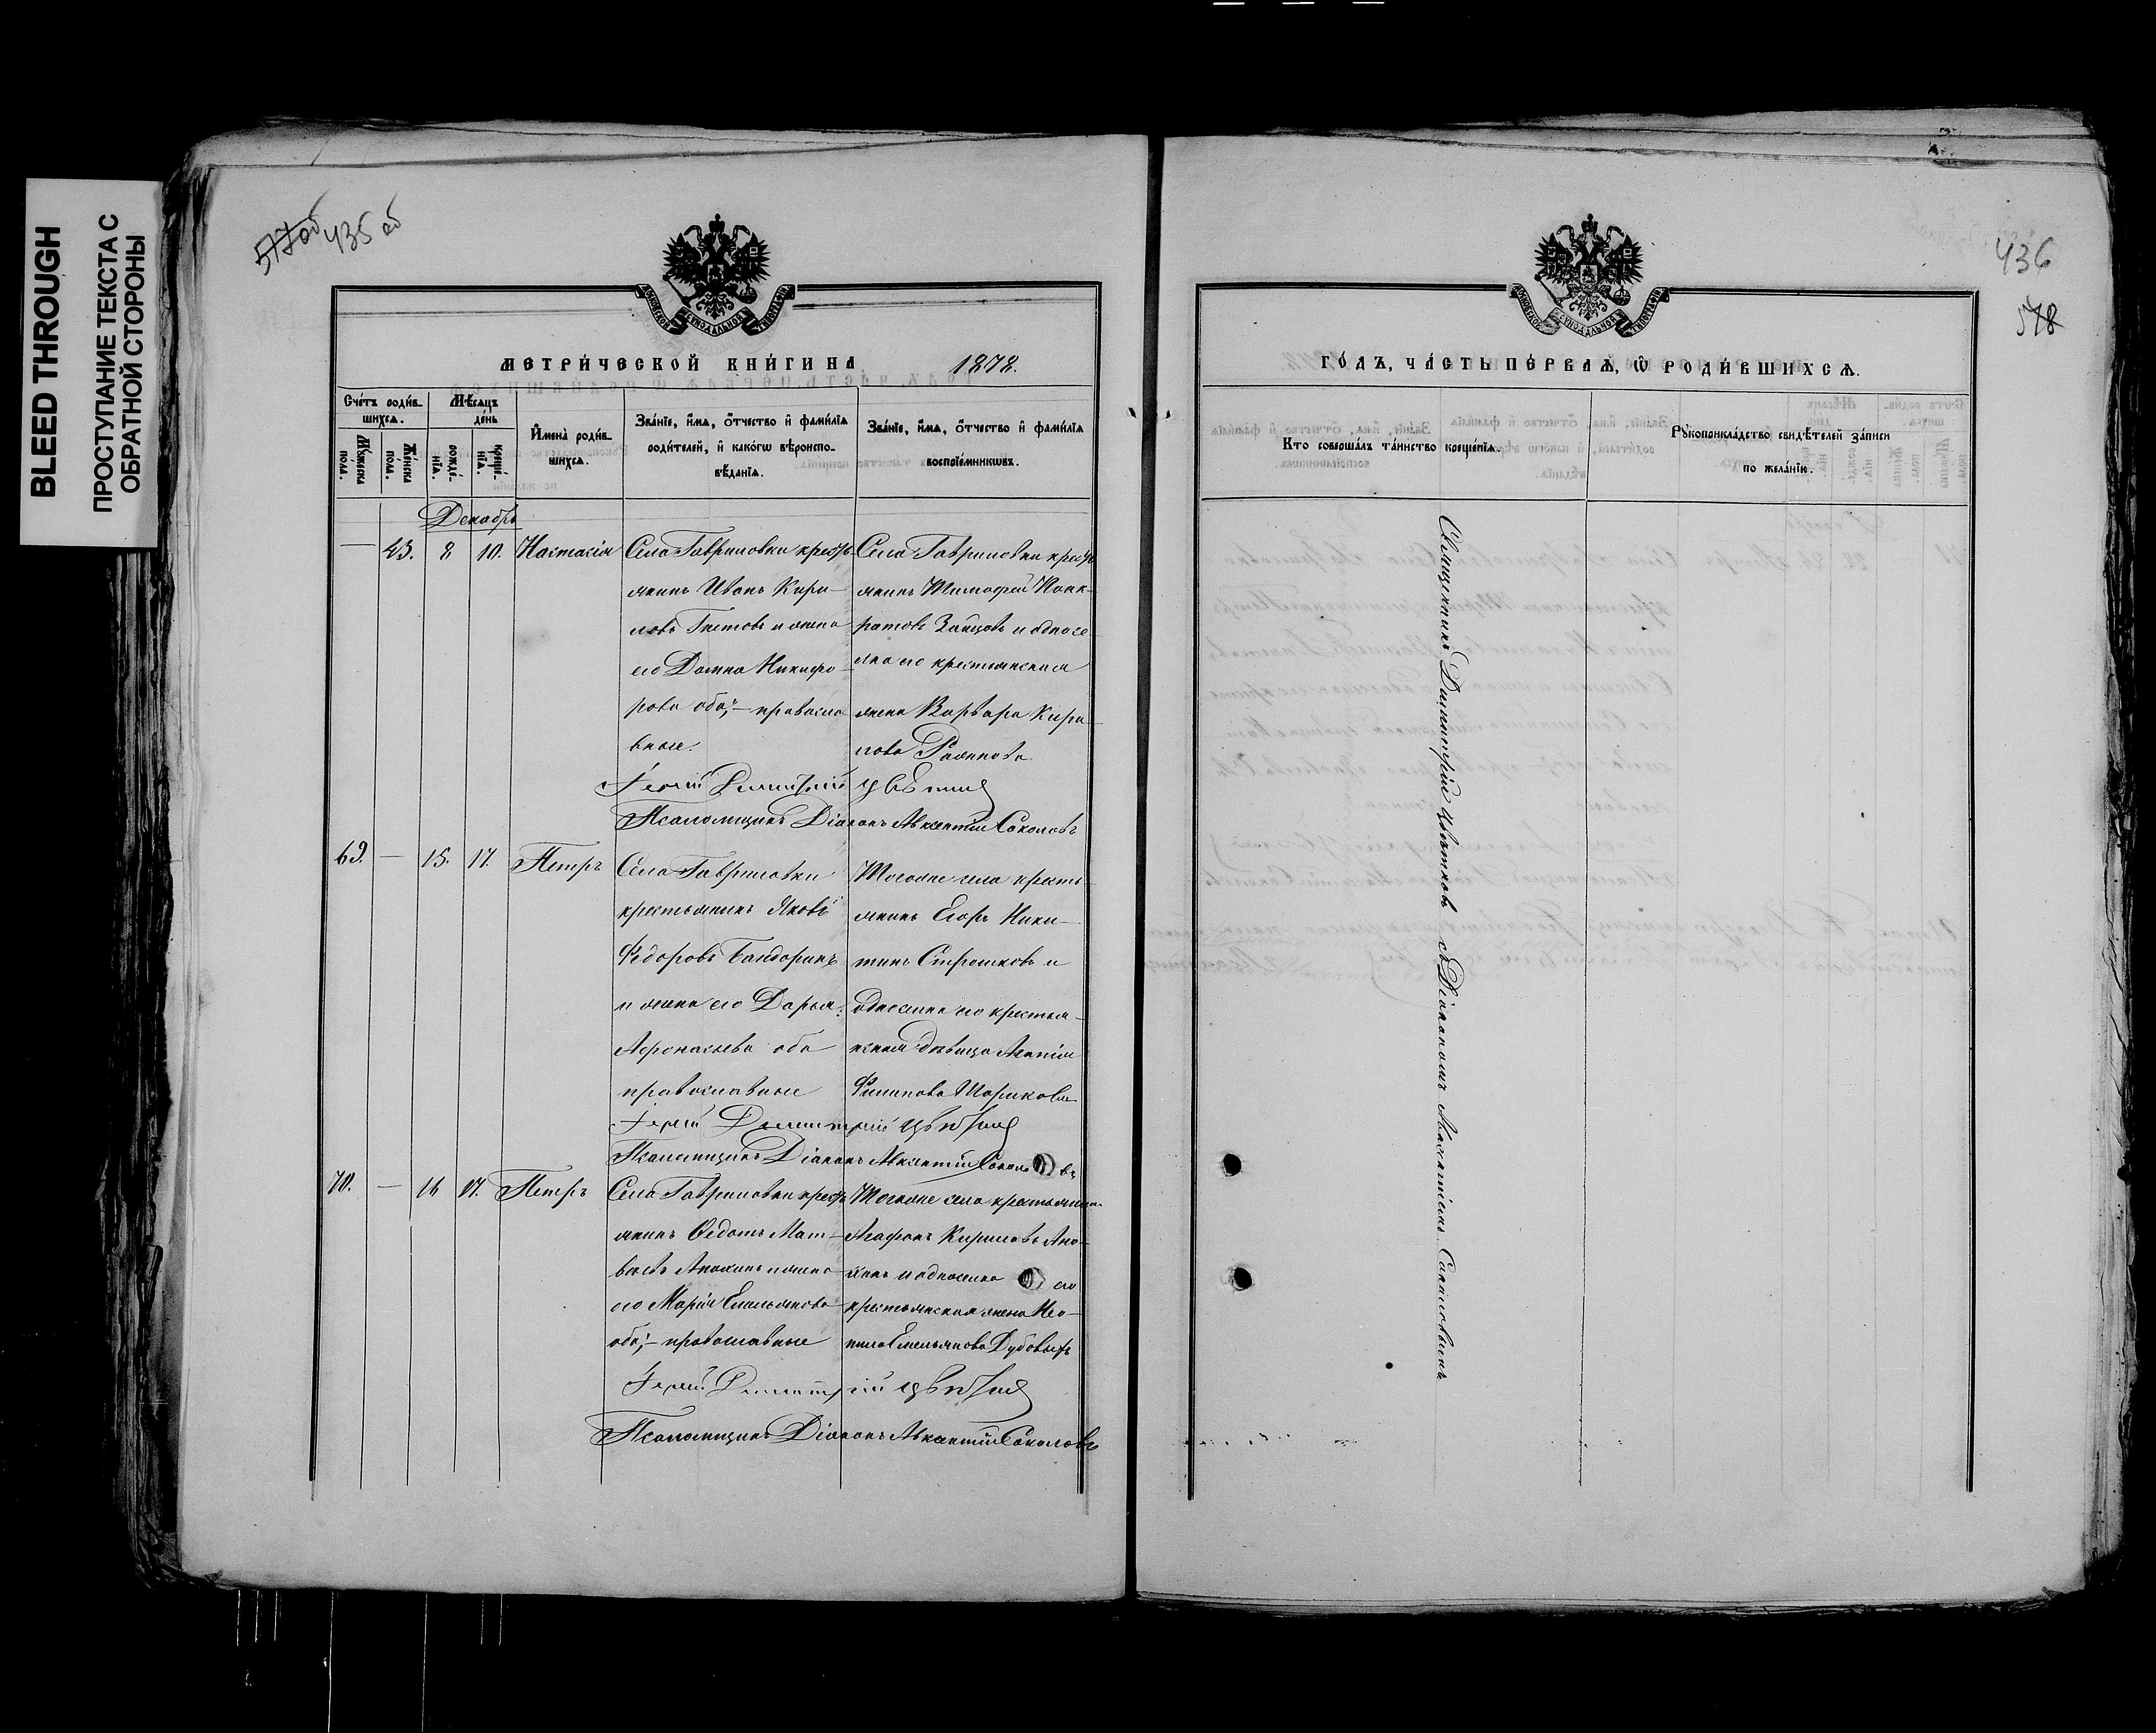 BLEED THROUGH
ПРОСТУПАНИЕ ТЕКСТА С
ОБРАТНОЙ СТОРОНЫ
517об 435 об
МЕТРИ́ЧЕСКОЙ КНИ́ГИ НА 1878.
Сче́тъ роди́в-
шихсѧ.
Му́жеска
пола.
Же́нска
пола.
Мѣ́сѧцъ
де́нь
рожде́-
нїѧ.
креще́-
нїѧ.
И҆мена̀ роди́в-
шихсѧ.
Зва́нїе, и҆́мѧ, ѻ҆́тчество и҆ фами́лїѧ
роди́телей, и҆ како́гѡ вѣроиспо-
вѣ́данїѧ.
Зва́нїе, и҆́мѧ, ѻ҆́тчество и҆ фами́лїѧ
воспрїе́мникѡвъ.
Декабрь
— 43. 8 10. Настасія
Села Гавриловки кресть-
янинъ Иванъ Кири-
ловъ и жена
его Домна Никифо-
рова оба, православ-
вные.
Села Гавриловки кресть
янинъ Тимофей Панк-
ратовъ Зайцовъ и односе-
лка его крестьянская
жена Варвара Кири-
лова
Іерей Димитрій Цвѣтковъ
Псаломщикъ Діаконъ Авксентій Соколовъ
69. — 15. 17. Петръ
Села Гавриловки
крестьянинъ Яковъ
Ѳедоровъ Бандоринъ
и жена его Дарья
Афонасьева оба
православные
Тогоже села кресть-
янинъ Егоръ Ники-
тинъ Строшковъ и
односелка его крестья-
нская дѣвица Агапія
Филипова Шарикова
Іерей Димитрій Цвѣтковъ
Псаломщикъ Діаконъ Авксентій Соколовъ
70. — 16 17. Петръ
Села Гавриловки кресть
янинъ Ѳедотъ Мат-
вѣевъ Анохинъ и жена
его Марія Емельянова
оба, — православные
Тогоже села крестьянинъ
Агафонъ Кириловъ Ано-
хинъ и односелка его
крестьянская жена Нео-
нила Емельянова Дубовыхъ
Іерей Димитрій Цвѣтковъ
Псаломщикъ Діаконъ Авксентій Соколовъ
436
518
ГО́ДЪ, ЧА́СТЬ ПЕ́РВАѦ, Ѡ҆ РОДИ́ВШИХСѦ.
Кто̀ соверша́лъ та́инство креще́нїѧ.
Рꙋкоприкла́дство свидѣ́телей за́писи
по жела́нїю.
Священникъ Димитрій Цвѣтковъ съ Діакономъ Авксентіемъ Соколовымъ